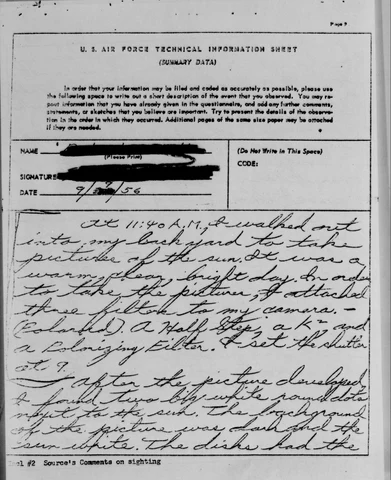 Page 9
U. S. AIR FORCE TECHNICAL INFORMATION SHEET
(SUMMARY DATA)
In order that your information may be filed and coded as accurately as possible, please use
the following space to write out a short description of the event that you observed. You may re-
peat information that you have already given in the questionnaire, and add any further comments,
statements, or sketches that you believe are important. Try to present the details of the observa-
tion in the order in which they occurred. Additional pages of the same size paper may be attached
if they are needed.
NAME
(Please Print)
SIGNATURE
DATE 9/ /56
(Do Not Write in This Space)
CODE:
At 11:40 A.M., I walked out
into my back yard to take
pictures of the sun. It was a
warm, clear, bright day. In order
to take the pictures, I attached
three filters to my camera. -
(Polaroid). A Half Step, a K2, and
a Polorizing Filter. I set the shutter
at 9.
After the picture developed,
I found two big white round dots
next to the sun. The background
of the picture was dark and the
sun white. The disks had the
#2 Source's Comments on sighting